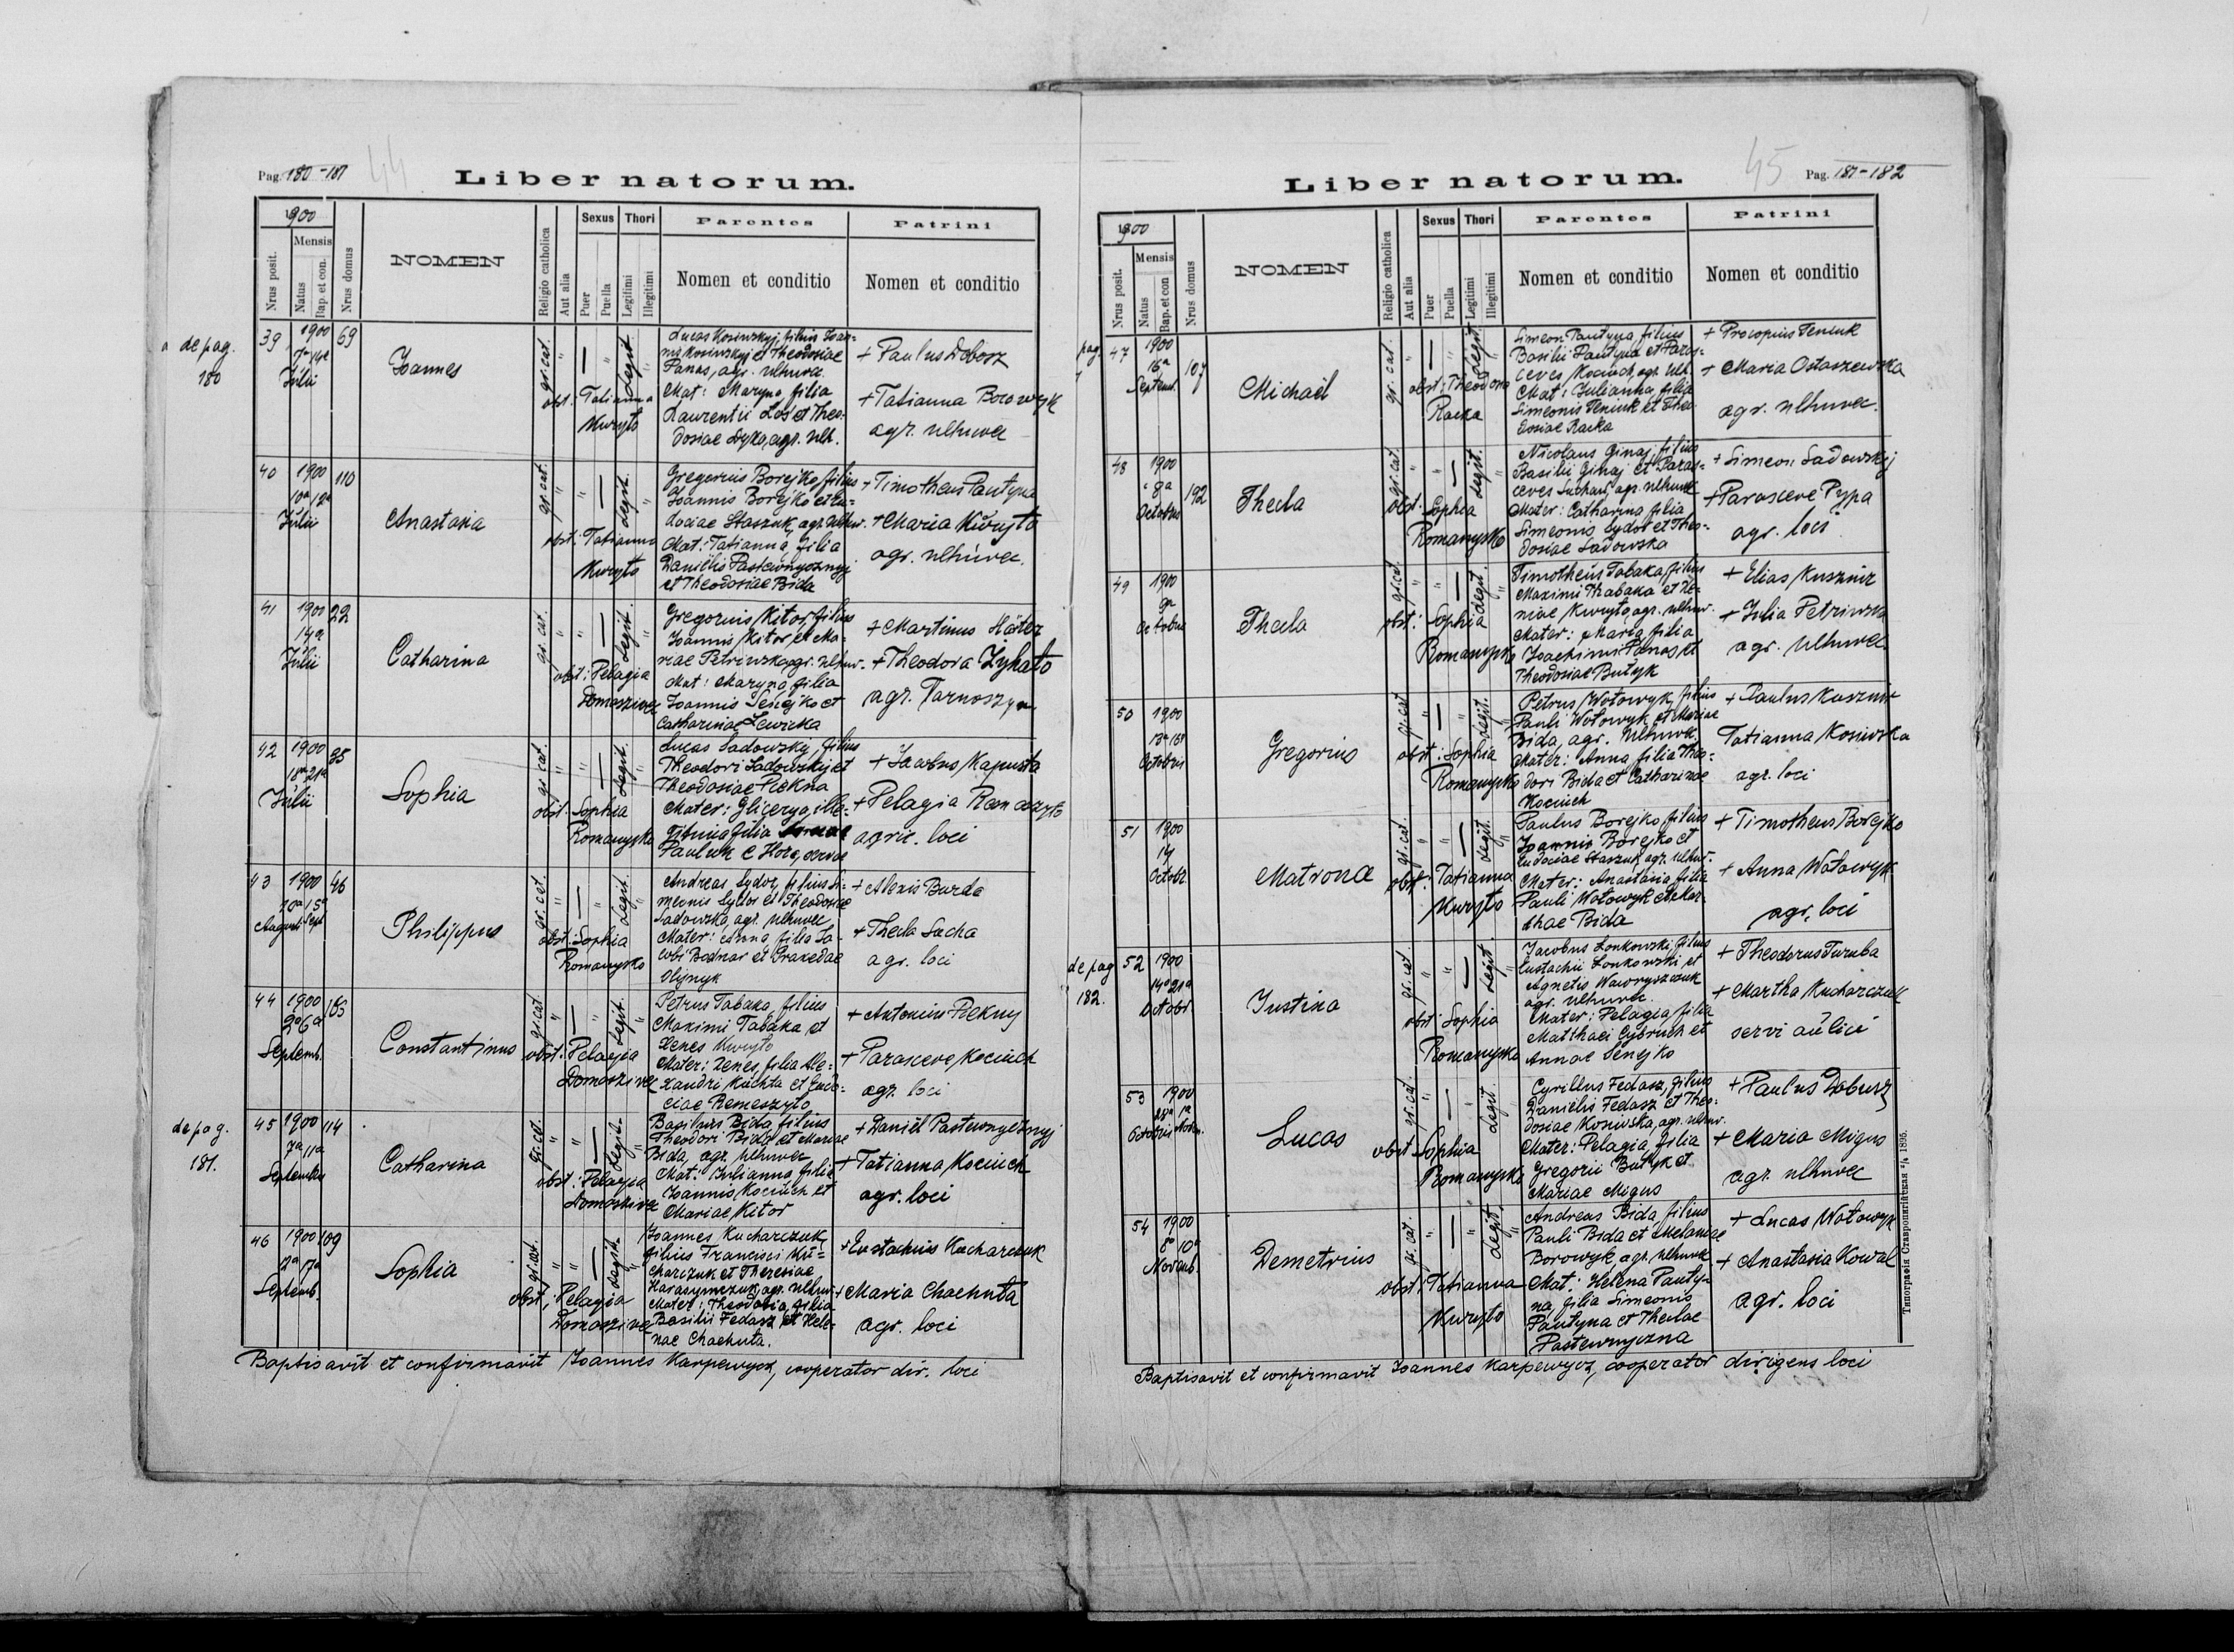 Pag. 180-181
44
Liber natorum.
1900
Nrus posit.
Mensis
Natus
Bap. et con.
Nrus domus
NOMEN
Religio catholica
Aut alia
Sexus
Puer
Puella
Thori
Legitimi
Illegitimi
Parentes
Nomen et conditio
Patrini
Nomen et conditio
de pag.
180
39
1900
Julii
69
Joannes
gr. cat.
legit.
obst: Tatianna
Kuryto
Lucas Kosiwskyj, filius Joan-
nis Kosiwskyj et Theodosiae
Panas, agr. Ulhuvec
Mat: Maryna filia
Laurentii Los et Theo-
dosiae Dyka, agr. Ulh.
+ Paulus Dobosz
+ Tatianna Borowyk
agr. Ulhuvec
40
1900
10a 12a
Julii
110
Anastasia
gr. cat.
legit.
obst: Tatianna
Kuryto
Gregorius Borejko filius
Joannis Borejko et Eu-
dociae Staszuk, agr. Ulhuv.
Mat: Tatianna, filia
Danielis Pastewnycznyj
et Theodosiae Bida
+ Timotheus Pautyna
+ Maria Kuryto
agr. Ulhuvec.
41
1900
14a
Julii
22
Catharina
gr. cat.
legit.
obst: Pelagia
Domaszivec
Gregorius Kitor, filius
Joannis Kitor, et Ma-
riae Petriwska, agr. Ulhuv.
Mat: Maryna filia
Joannis Senejko et
Catharinae Lewicka
+ Martinus
+ Theodora Zyhato
agr. Tarnoszyn
42
1900
18a 21a
Julii
85
Sophia
gr. cat.
legit.
obst. Sophia
Romanysko
Lucas Sadowskij, filius
Theodori Sadowskij et
Theodosiae Piekna
Mater: Glicerya, ille-
gitima filia
Pauluk e Hoře, servae
+ Jacobus Kapusta
+ Pelagia Remeszyto
agric. loci
43
1900
10a 15a
Augusti Sept
46
Philippus
gr. cat.
legit.
obst: Sophia
Romanysko
Andreas Sydor, filius Si-
meonis Sydor et Theodosiae
Sadowska, agr. Ulhuvec
Mater: Anna filia Ja-
cobi Bodnar et Praxedae
Olijnyk
+ Alexis Burda
+ Thecla Sucha
agr. loci
44
1900
2a 6a
Septemb.
Constantinus
gr. cat.
legit.
obst: Pelagia
Domaszivec
Petrus Tabaka, filius
Maximi Tabaka et
Xenes Kuryto
Mater: Xenes, filia Ale-
xandri Kuchta et Eudo-
ciae Remeszyto
+ Antonius Piekny
+ Parasceve Kociuch
agr. loci
de pag.
181.
45
1900
7a 11a
Septembr
114
Catharina
gr. cat.
legit.
obst: Pelagia
Domaszivec
Basilius Bida filius
Theodori Bida et Mariae
Bida, agr. Ulhuvec
Mat: Julianna filia
Joannis Kociuch et
Mariae Kitor
+ Daniel Pastewnycznyj
+ Tatianna Kociuch
agr. loci
46
1900
Septemb.
109
Sophia
gr. cat.
legit.
obst: Pelagia
Domaszivec
Joannes Kucharczuk
filius Francisci Ku-
charczuk et Theresiae
Harasymczuk, agr. Ulhuv.
Mater: Theodosia, filia
Basilii Fedasz et Hele-
nae Chachuta.
+ Eustachius Kucharczuk
+ Maria Chachuta
agr. loci
Baptisavit et confirmavit Joannes Karpewycz, cooperator dir. loci
45
Pag. 181-182
Liber natorum.
1900
Nrus posit.
Mensis
Natus
Bap. et con
Nrus domus
NOMEN
Religio catholica
Aut alia
Sexus
Puer
Puella
Thori
Legitimi
Illegitimi
Parentes
Nomen et conditio
Patrini
Nomen et conditio
pag.
47
1900
16a
Septemb.
107
Michaël
gr. cat.
legit.
obst: Theodora
Racka
Simeon Pautyna, filius
Basilii Pautyna et Paras-
ceves Kociuch, agr. Ulh.
Mat: Julianna, filia
Simeonis Teniuk et Theo-
dosiae Racka
+ Procopius Teniuk
+ Maria Ostaszewska
agr. Ulhuvec.
48
1900
8a
Octobris
192
Thecla
gr. cat.
legit.
obst: Sophia
Romanysko
Nicolaus Ginaj, filius
Basilii Ginaj et Paras-
ceves Suchan, agr. Ulhuvec
Mater: Catharina filia
Simeonis Sydor et Theo-
dosiae Sadowska
+ Simeon Sadowskij
+ Parasceve Pypa
agr. loci
49
1900
9a
Octobris
Thecla
gr. cat.
legit.
obst: Sophia
Romanysko
Timotheus Tabaka, filius
Maximi Thabaka et Xe-
niae Kuryto, agr. Ulhuv.
Mater: Maria filia
Joachimi Panas et
Theodosiae Butyk
+ Elias Kusznir
+ Julia Petriwska
agr. Ulhuvec
50
1900
13a 16a
Octobris
Gregorius
gr. cat.
legit.
obst: Sophia
Romanysko
Petrus Wotowyk, filius
Pauli Wotowyk et Mariae
Bida, agr. Ulhuvec.
Mater: Anna, filia Theo-
dori Bida et Catharinae
Kociuch
+ Paulus Kusznir
Tatianna Kosiwska
agr. loci
51
1900
14
Octobr.
Matrona
gr. cat.
legit.
obst: Tatianna
Kuryto
Paulus Borejko filius
Joannis Borejko et
Eudociae Staszuk, agr. Ulhuv.
Mater: Anastasia filia
Pauli Wotowyk et Mar-
thae Bida
+ Timotheus Borejko
+ Anna Wotowyk
agr. loci
de pag
182.
52
1900
14a 21a
Octobr.
Justina
gr. cat.
legit.
obst: Sophia
Romanysko
Jacobus Lonkowski, filius
Eustachii Lonkowski et
Agnetis Waworyszczuk
agr. Ulhuvec.
Mater: Pelagia, filia
Matthaei Cybruch et
Annae Senejko
+ Theodorus Turuba
+ Martha Kucharczuk
servi aulici
53
1900
28a 1a
Octobris Novm.
Lucas
gr. cat.
legit.
obst Sophia
Romanysko
Cyrillus Fedasz, filius
Danielis Fedasz et Theo-
dosiae Kosiwska, agr. Ulhuv.
Mater: Pelagia, filia
Gregorii Butyk et
Mariae Migus
+ Paulus Dobusz
+ Maria Migus
agr. Ulhuvec
54
1900
8a 10a
Novemb.
Demetrius
gr. cat.
legit.
obst: Tatianna
Kuryto
Andreas Bida filius
Pauli Bida et Melaniae
Borowyk, agr. Ulhuvec
Mat: Helena Pauty-
na, filia Simeonis
Pautyna et Theclae
Pastewnyczna
+ Lucas Wotowyk
+ Anastasia Kowal
agr. loci
Baptisavit et confirmavit Joannes Karpewycz, cooperator dirigens loci
Типографія Ставропигійская 1895.